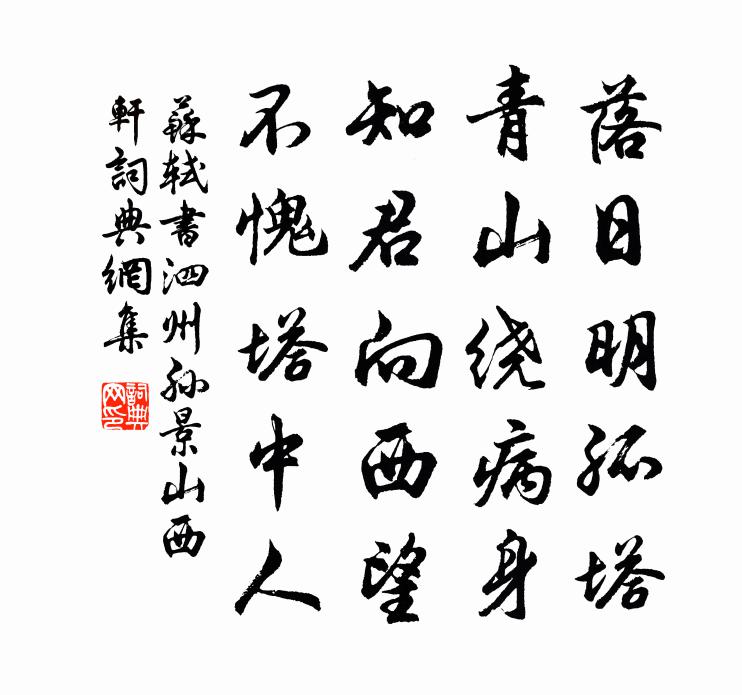 落日明孤塔
青山绕病身
知君向西望
不愧塔中人
蘇軾書泗州孙景山西
軒詞典網集
詞典
网印